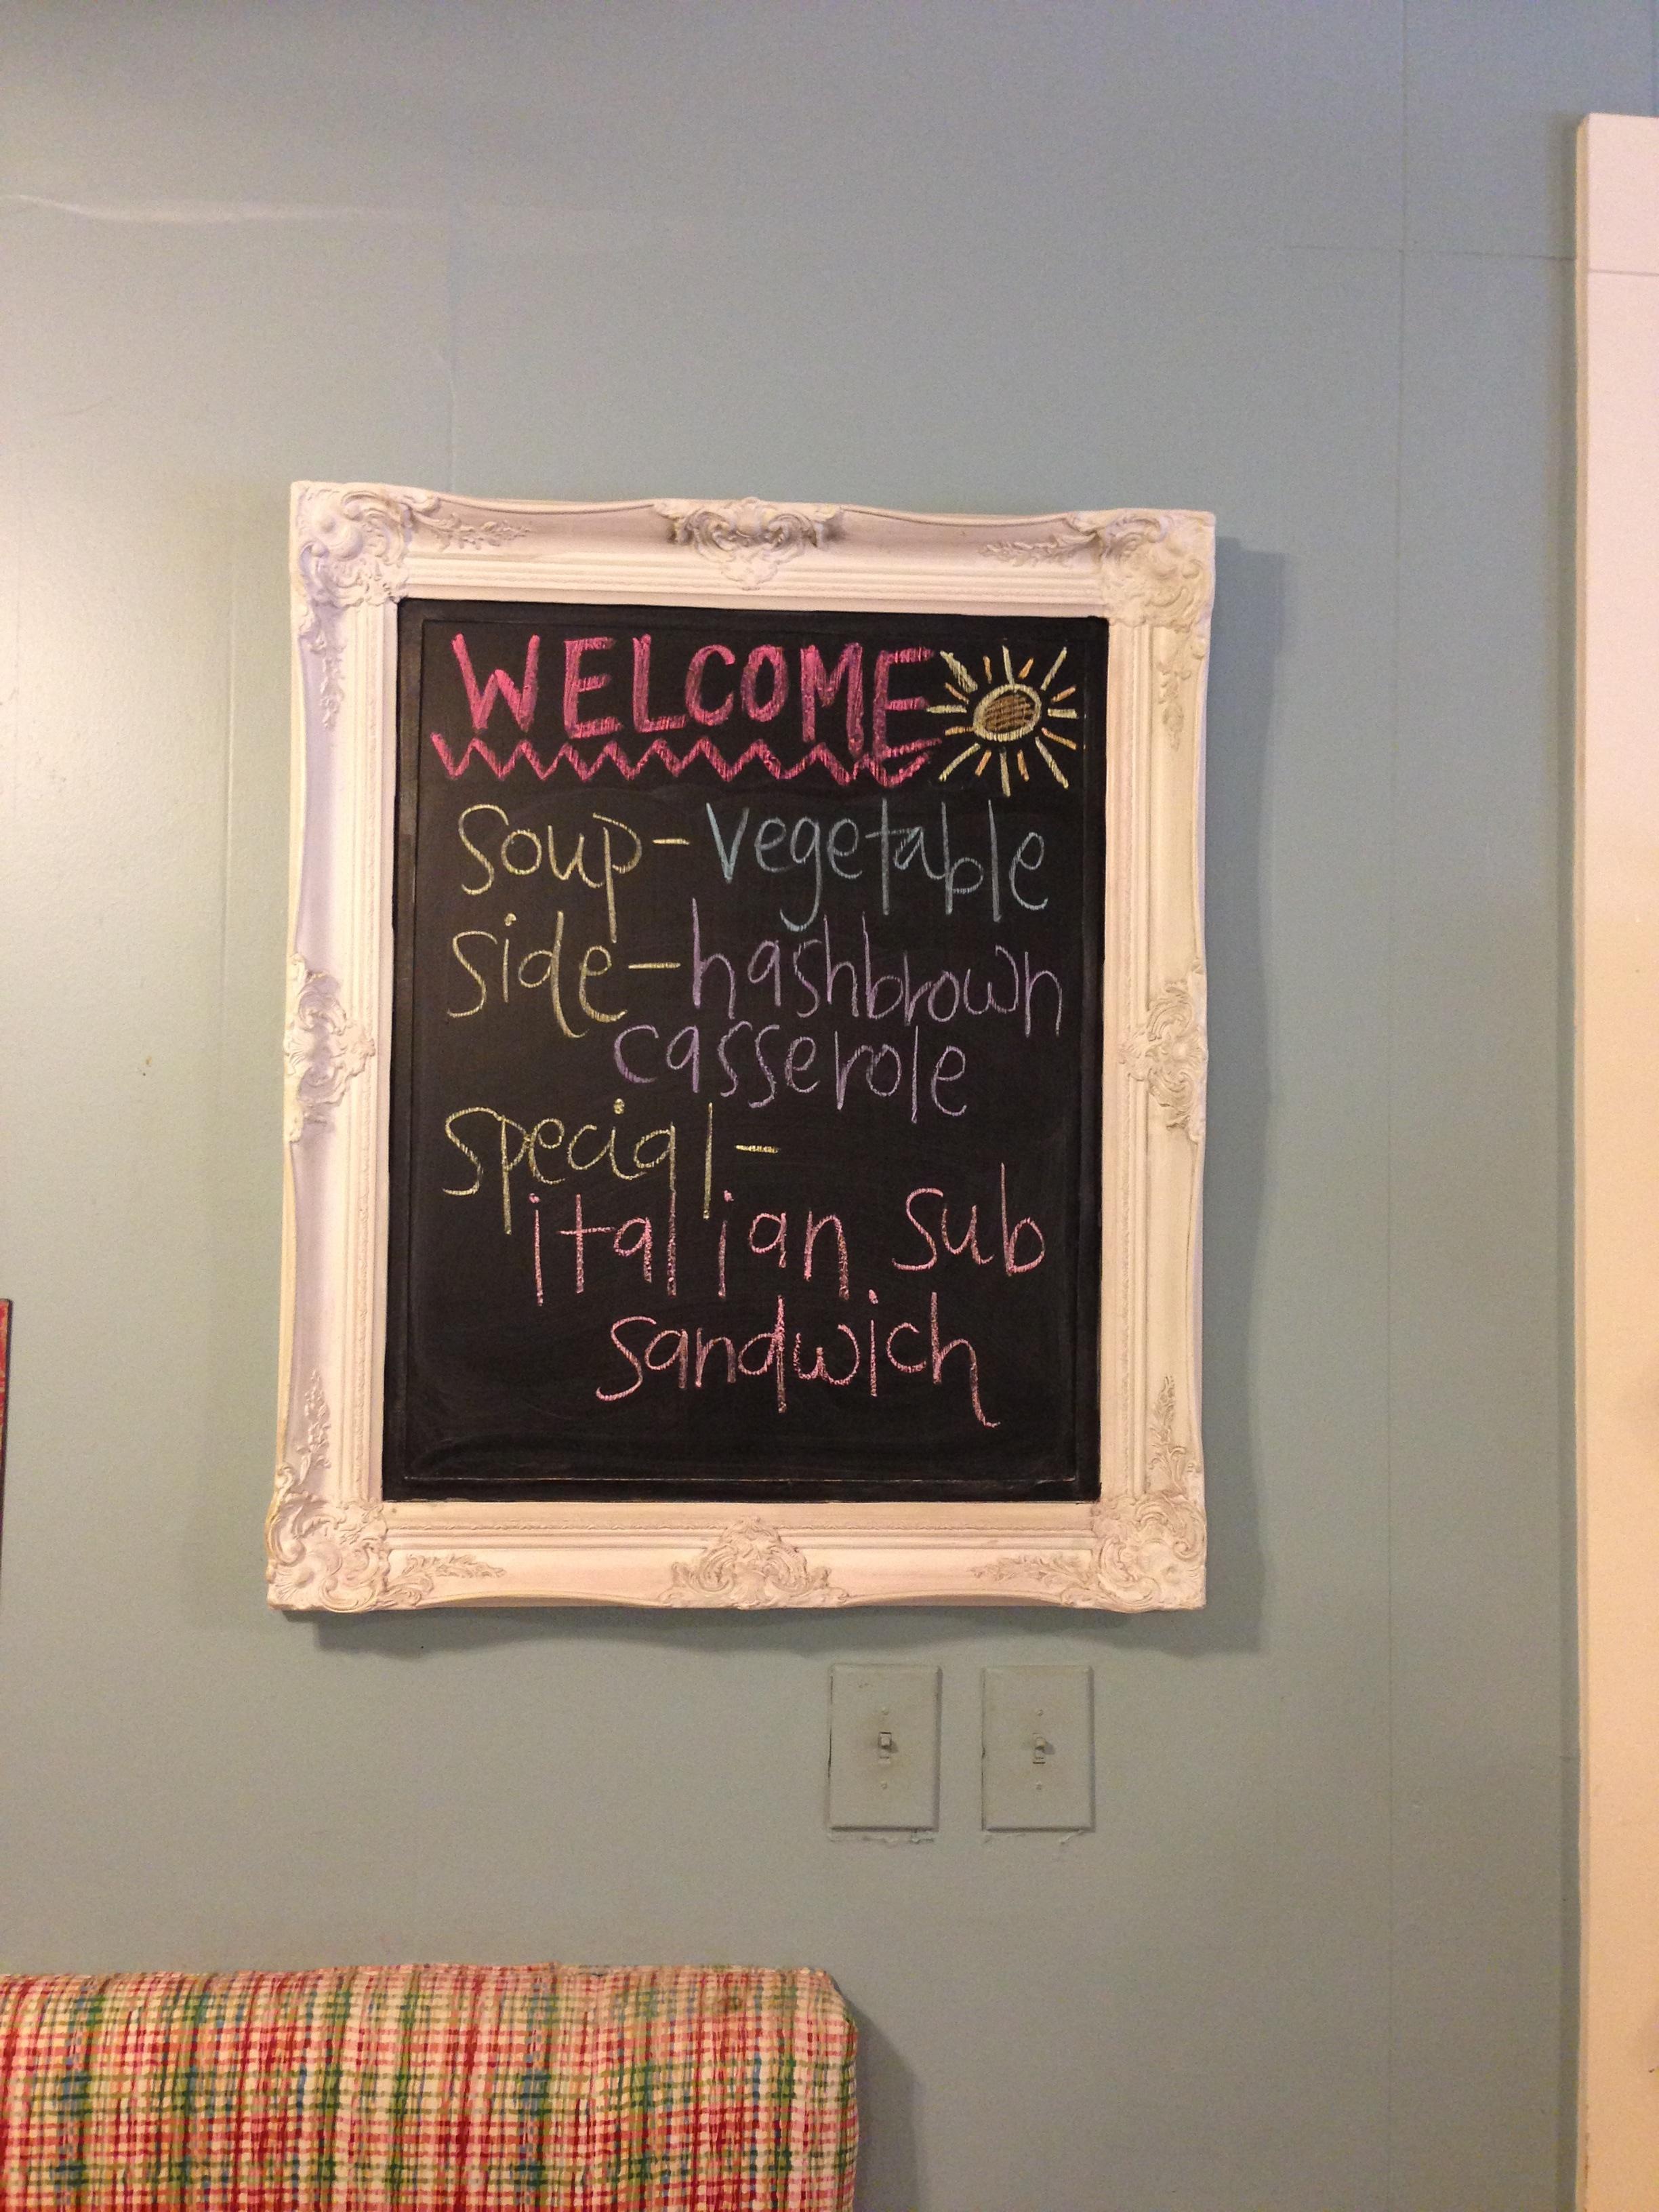 WELCOME
soup-vegetable
side-hashbrown
casserole
special-
italian sub
sandwich